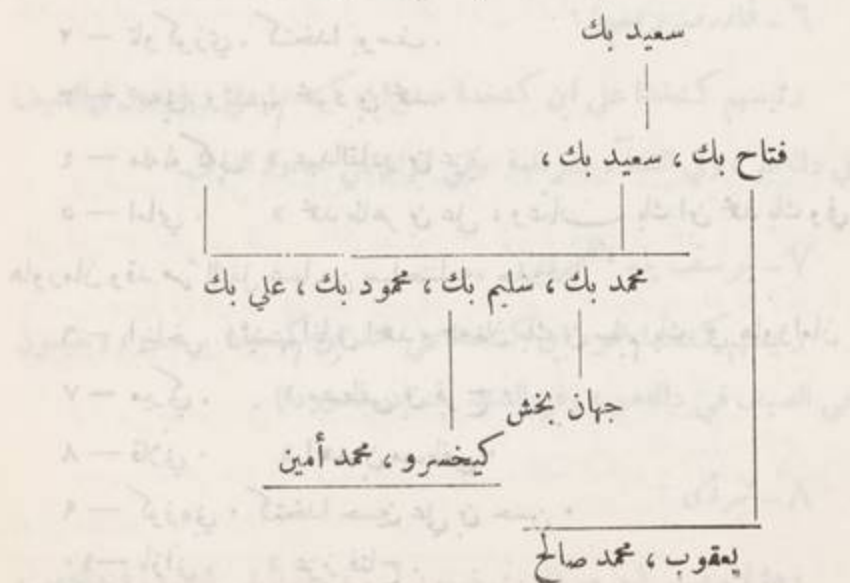 سعيد بك
فتاح بك ، سعيد بك ،
محمد بك ، سليم بك ، محمود بك ، علي بك
جهان بخش
كيخسرو ، محمد أمين
يعقوب ، محمد صالح